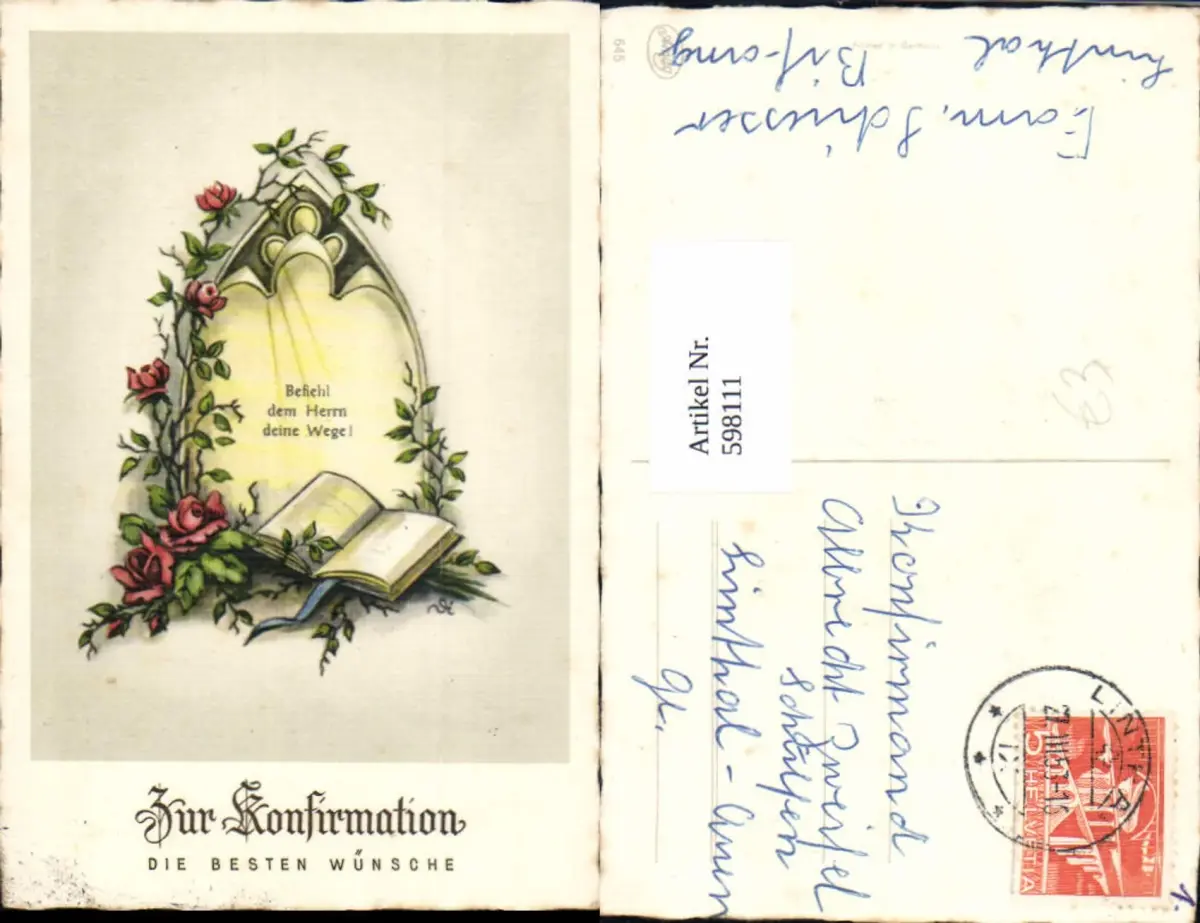 Befiehl
dem Herrn
deine Wege!
Zur Konfirmation
DIE BESTEN WÜNSCHE
645
Fam. Schiesser
Linthal Bifang
Artikel Nr.
598111
Konfirmand
Albrecht Zweifel
Linthal - Auen
Gl.
LINTHAL
HELVETIA
5